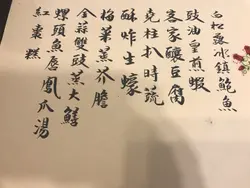 白松露冰鎮鮑魚
豉油皇煎蝦
客家釀豆腐
克柱扒時蔬
酥咋生蠔
梅菜蒸芥膽
金蒜雙豉蒸大鱔
螺頭魚唇鳳爪湯
紅棗糕